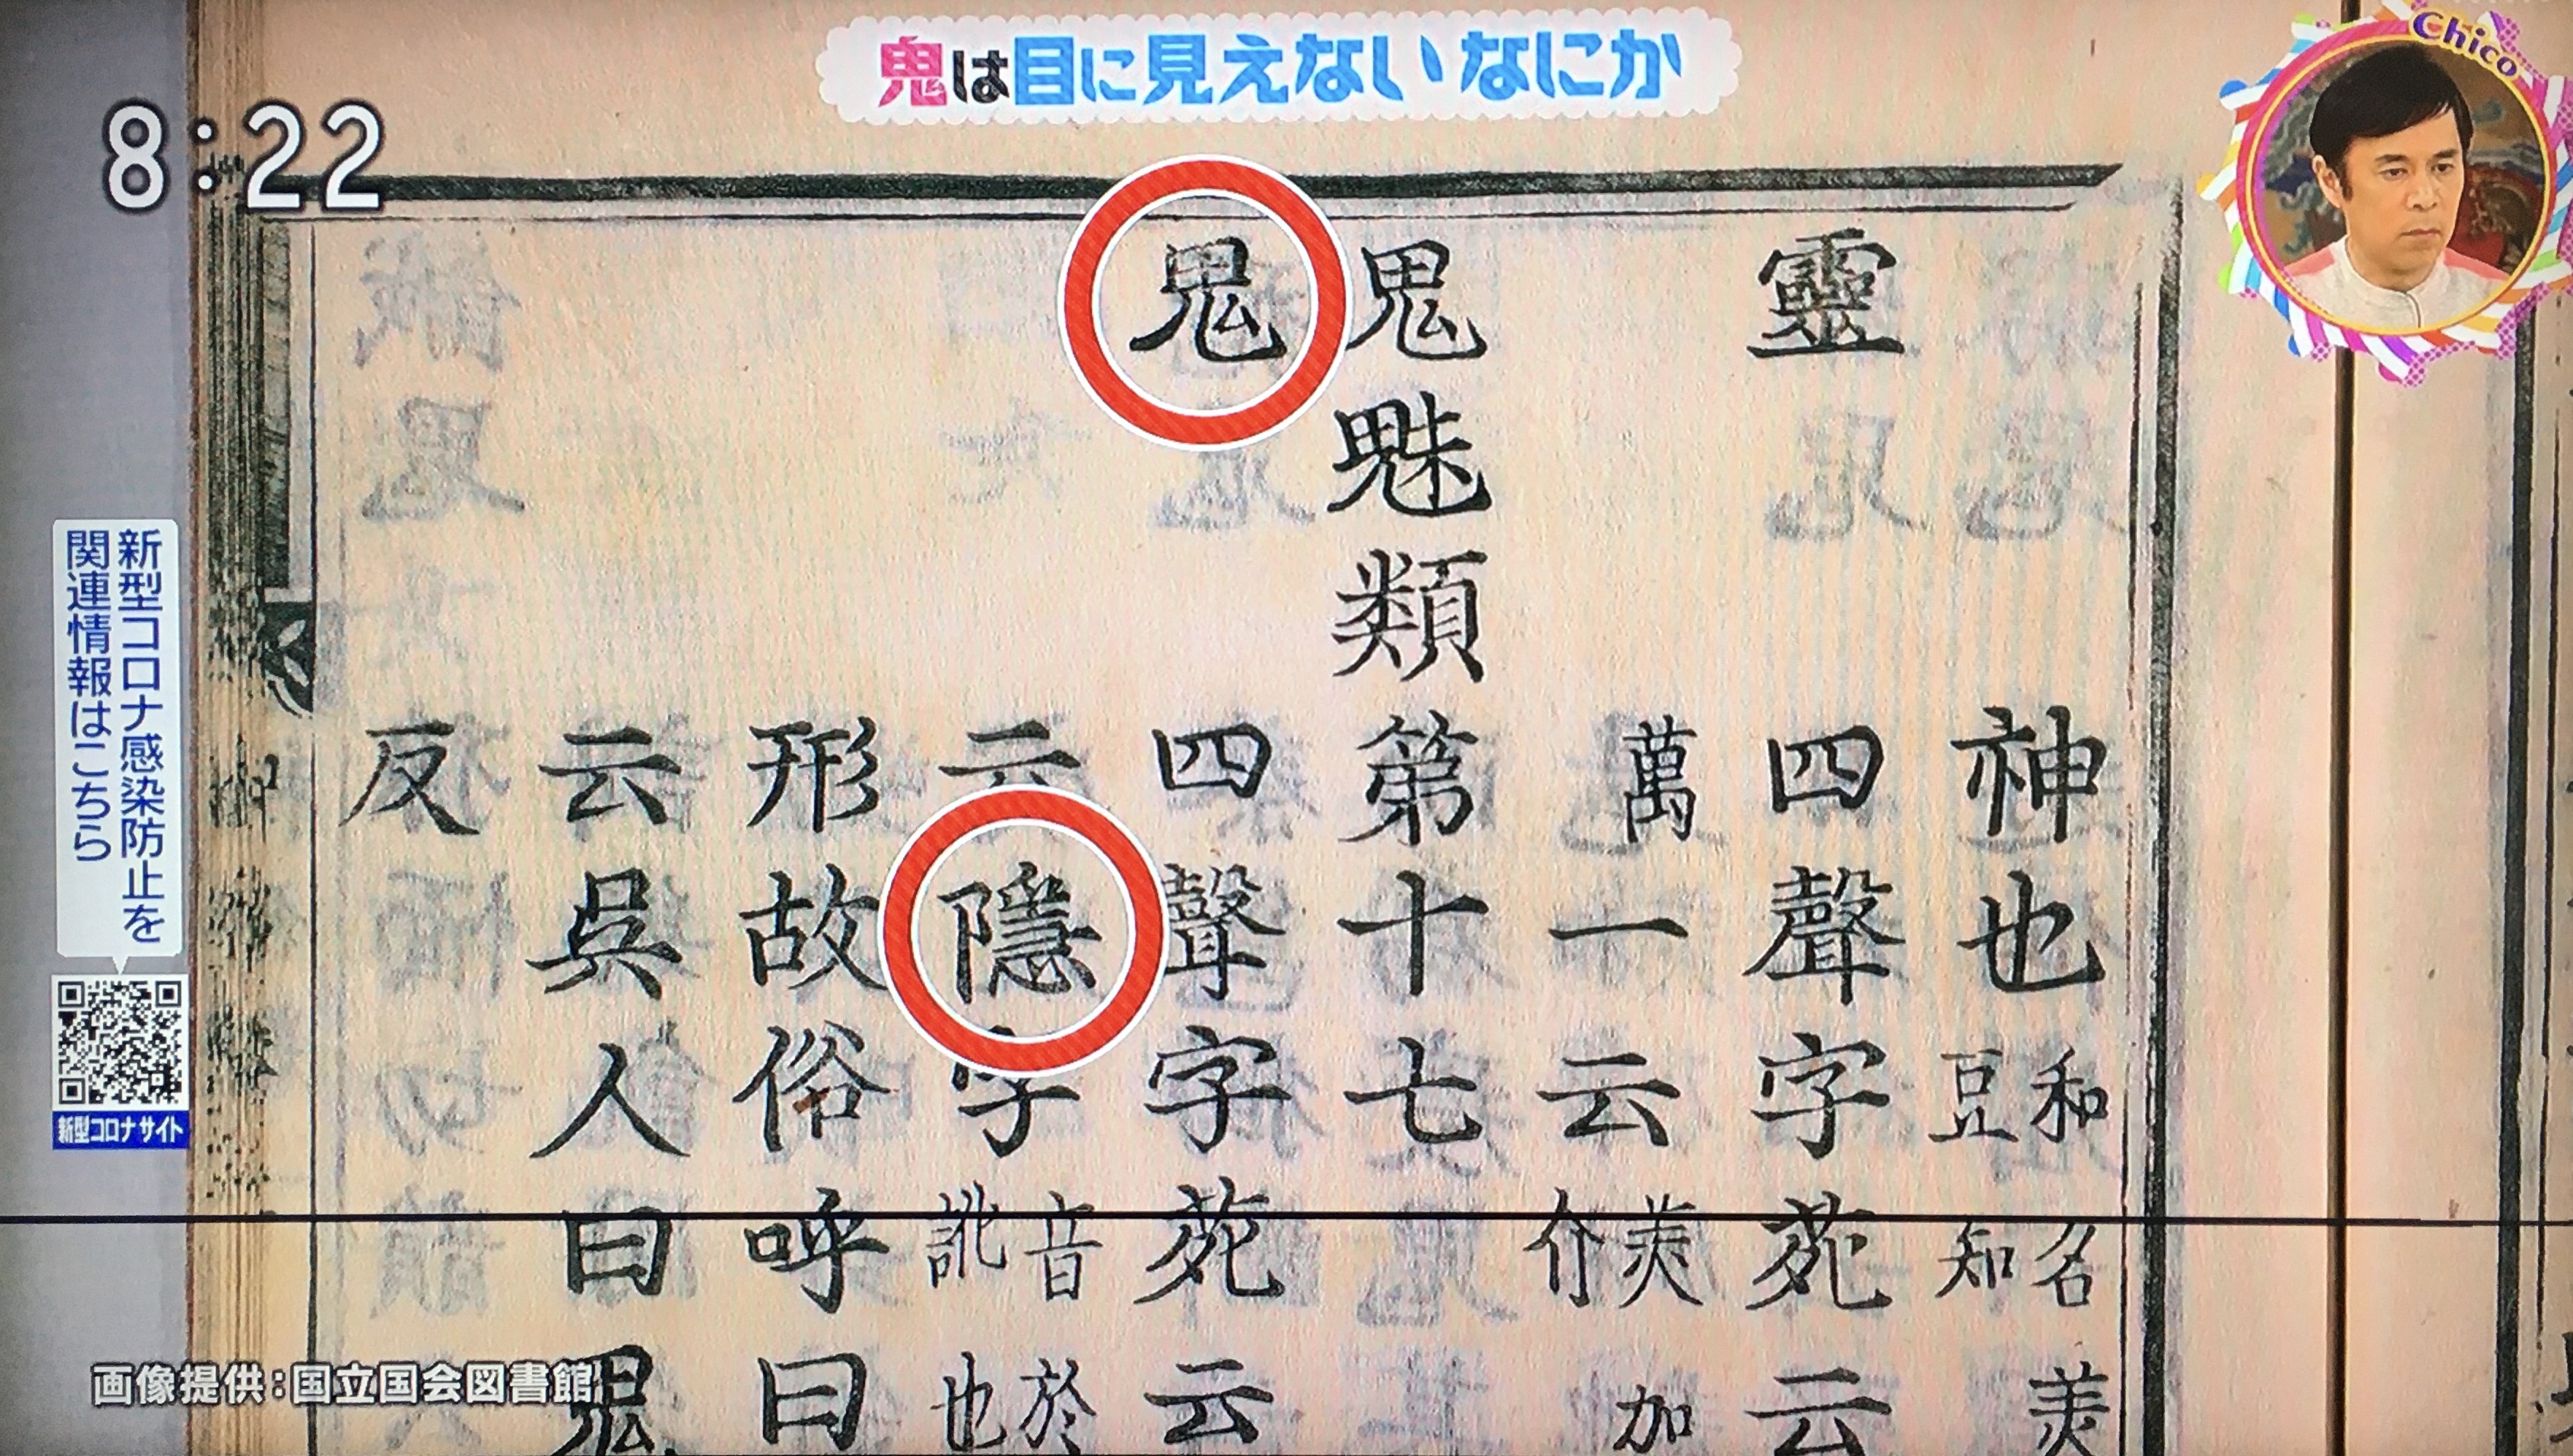 鬼は目に見えないなにか
Chico
8:22
新型コロナ感染防止を
関連情報はこちら
新型コロナサイト
神也 和名美
豆知
靈 四聲字苑云
萬一云 美加
介
鬼魅類第十七
鬼 四聲字苑云
云隱字 音於
訛也
形故俗呼曰
云吳人曰鬼
反
画像提供:国立国会図書館